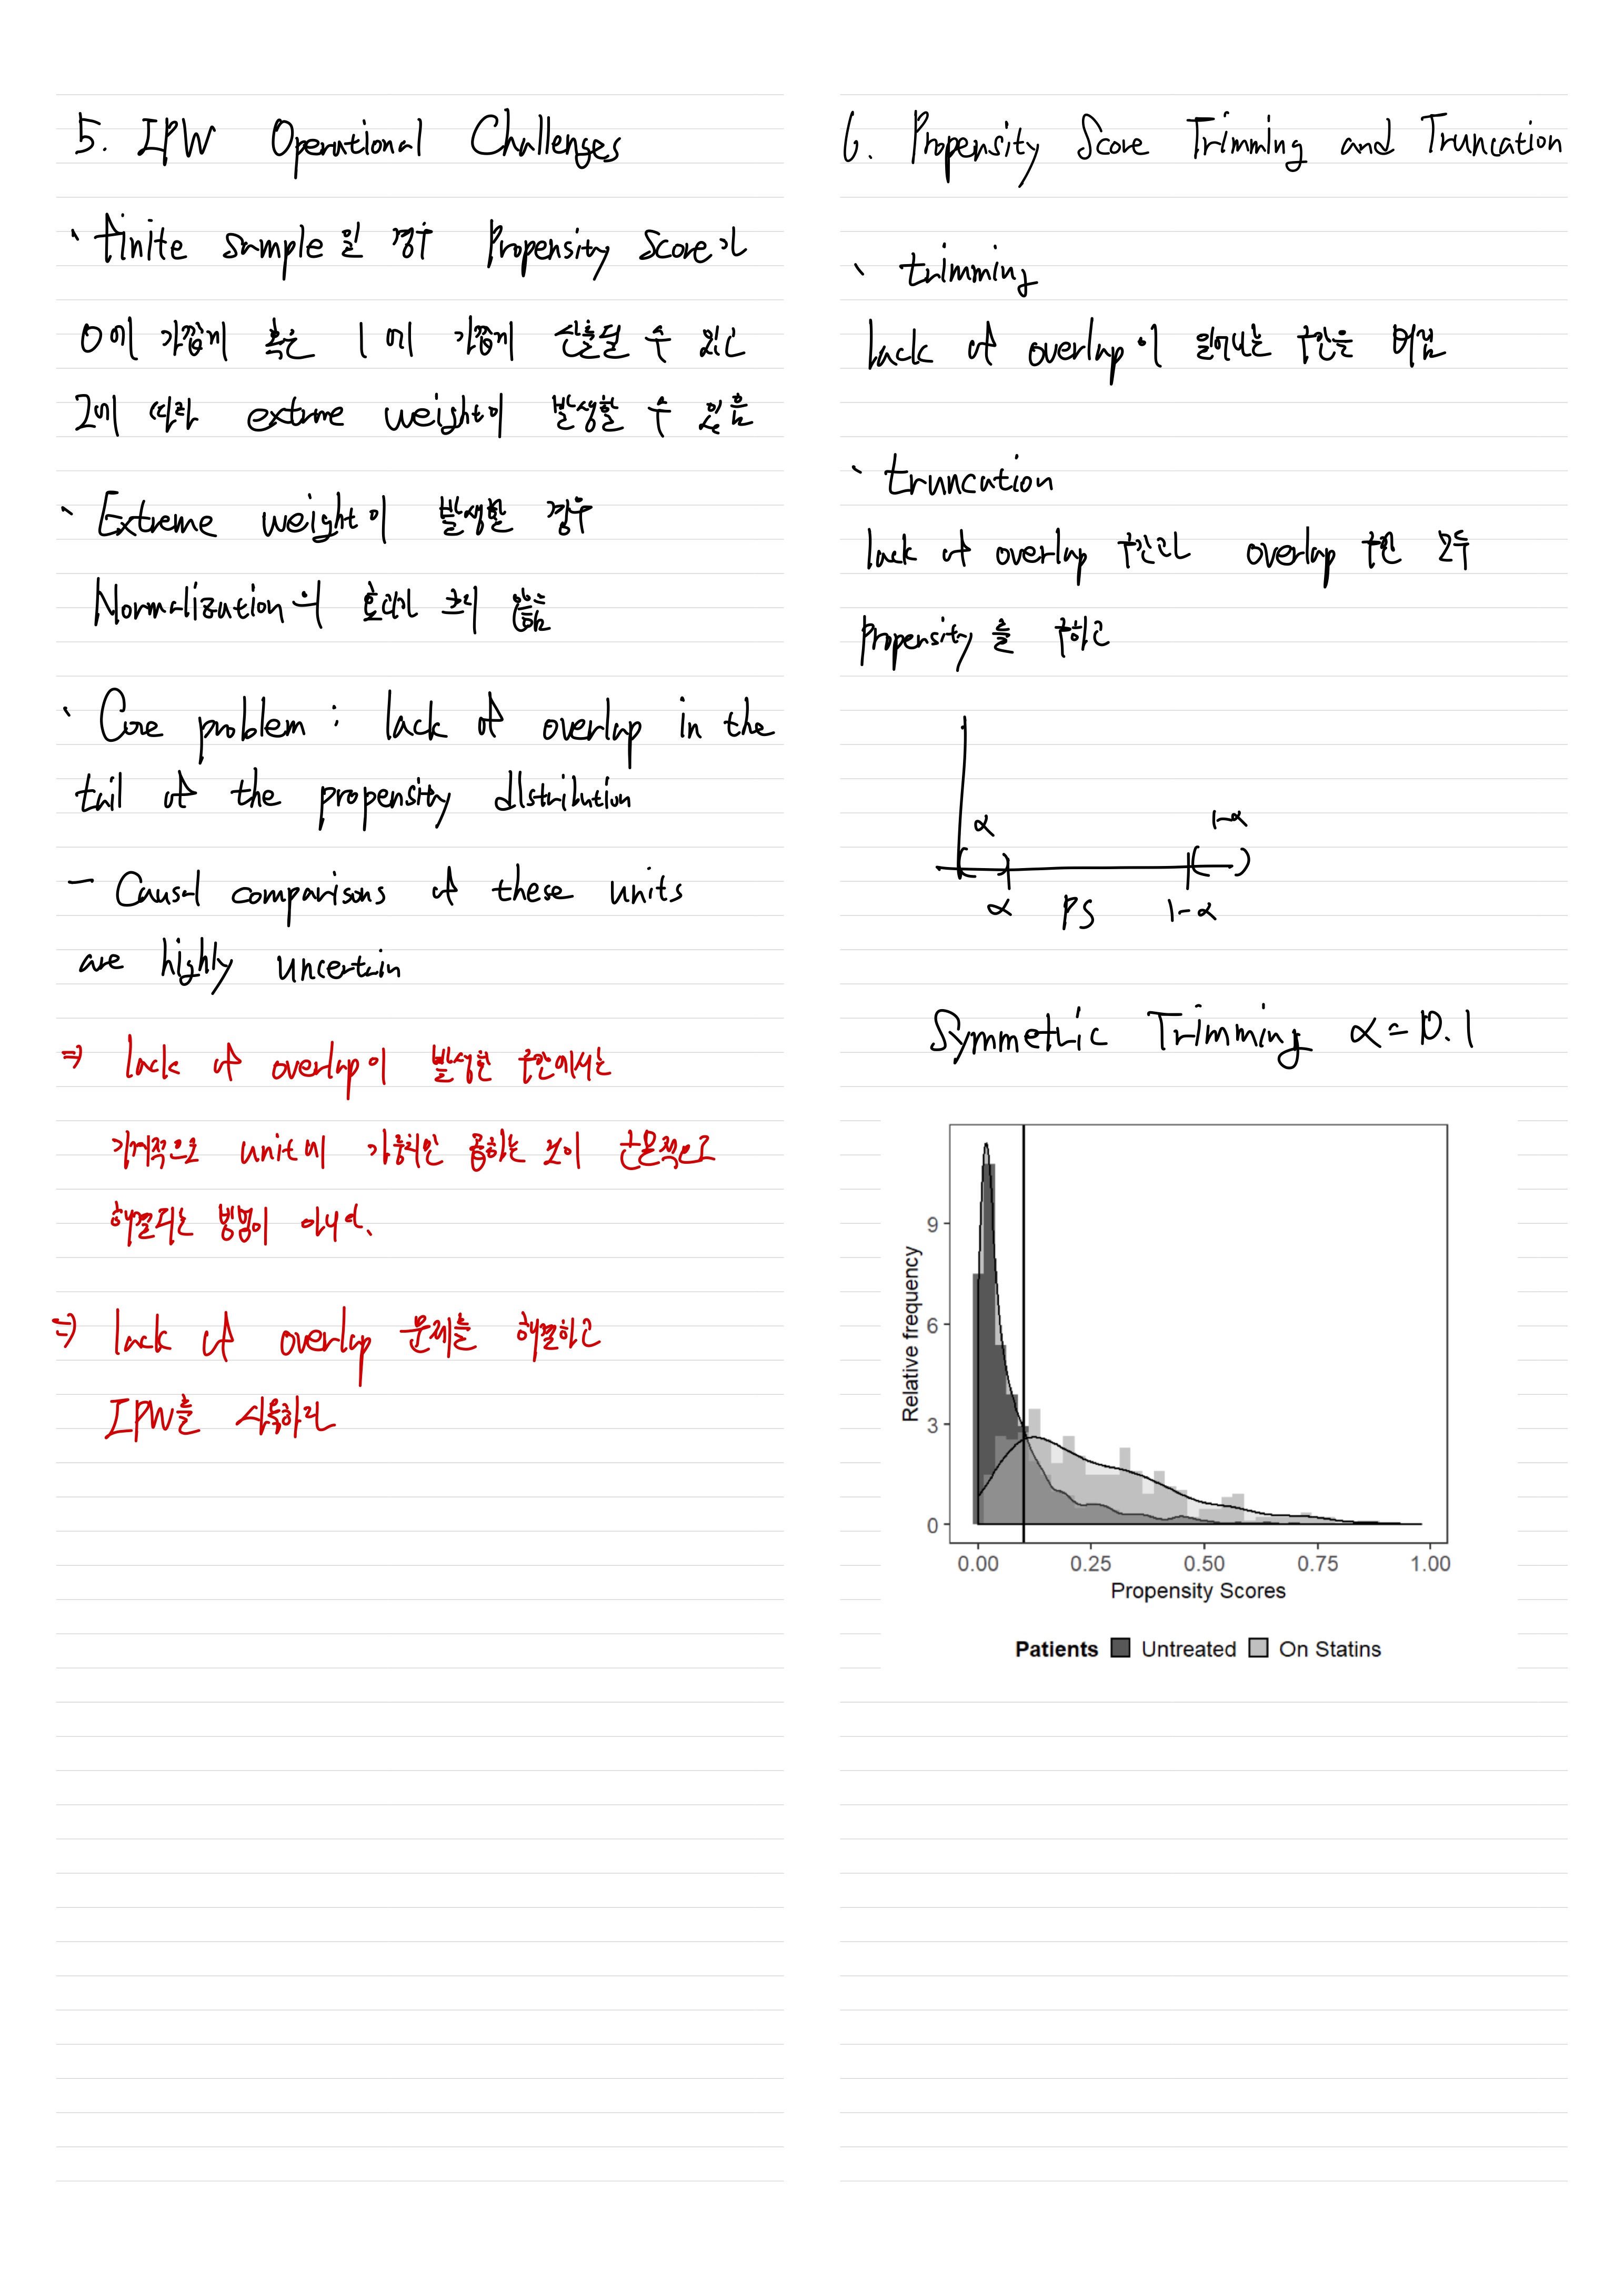 5. IPW Operational Challenges
` finite sample 일 경우 Propensity Score가
0에 가깝게 혹은 1에 가깝게 산출될 수 있고
그에 따라 extrme weight이 발생할 수 있음
` Extreme weight이 발생할 경우
Normalization의 효과가 크지 않음
` Core problem : lack of overlap in the
tail of the propensity distribution
- Causal comparisons of these units
are highly uncertain
⇒ lack of overlap이 발생한 구간에서는
기계적으로 unit에 가중치만 곱하는 것이 근본적으로
해결되는 방법이 아니다.
⇒ lack of overlap 문제를 해결하고
IPW를 사용하라
6. Propensity Score Trimming and Truncation
` trimming
lack of overlap이 일어나는 구간을 버림
` truncation
lack of overlap 구간과 overlap 구간 모두
Propensity를 구하고
α 1-α
α PS 1-α
Symmetric Trimming α=0.1
Relative frequency
9
6
3
0
0.00 0.25 0.50 0.75 1.00
Propensity Scores
Patients Untreated On Statins